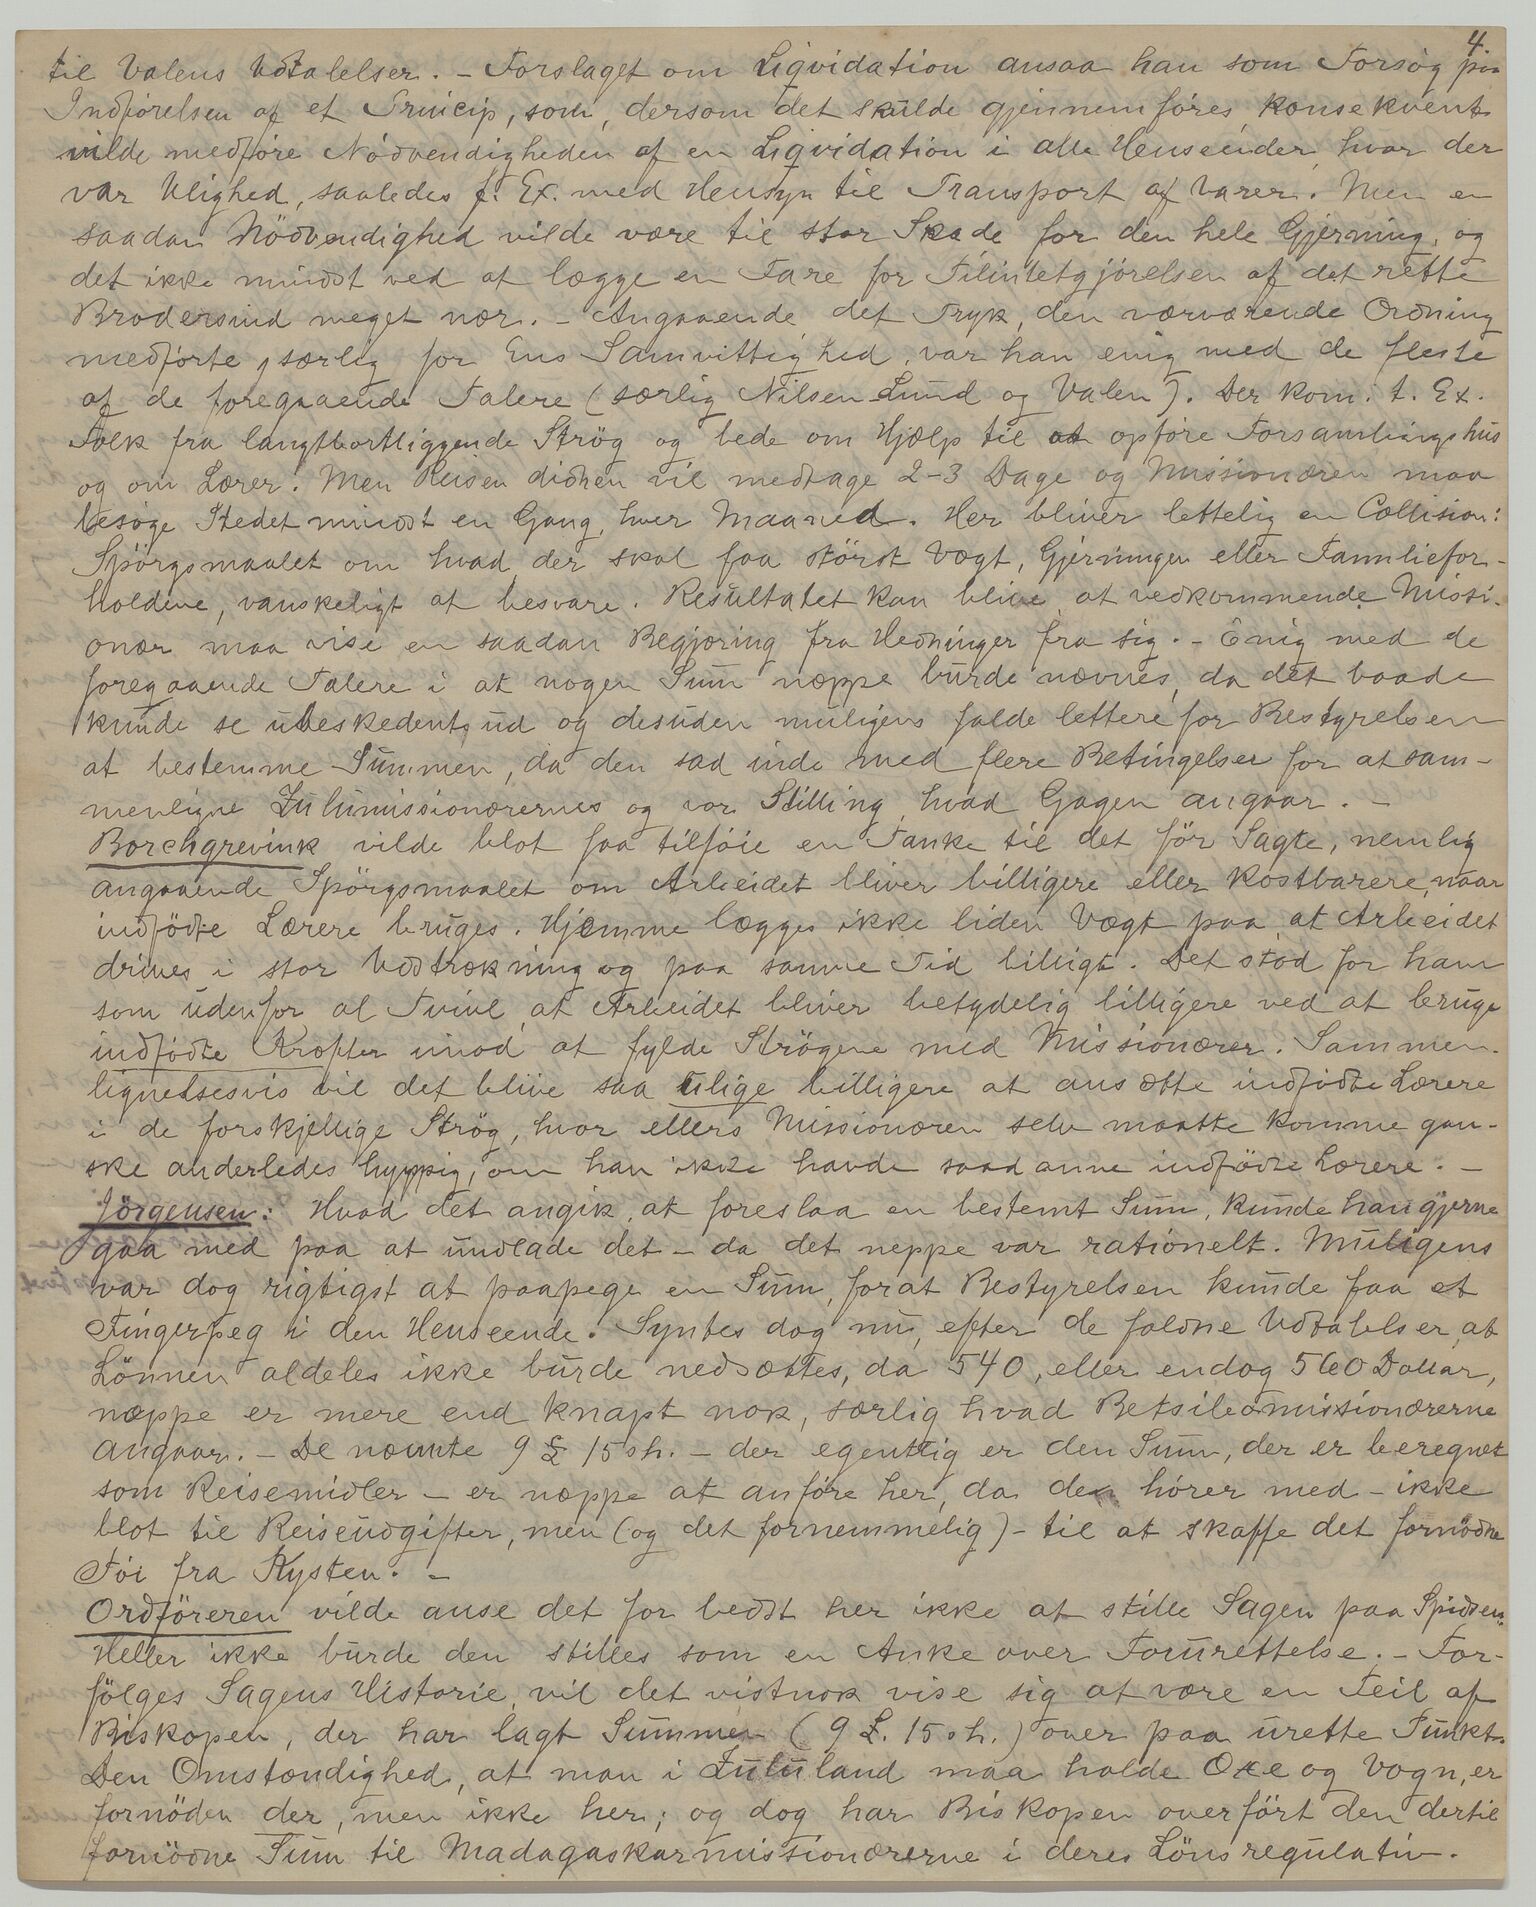 4.
til Valens Udtalelser. - Forslaget om Liqvidation ansaa han som Forsøg paa
Indførelsen af et Princip, som, dersom det skulde gjennemføres konsekvent
vilde medføre Nödvendigheden af en Liqvidation i alle Henseender, hvor der
var Ulighed, saaledes f. Ex. med Hensyn til Transport af Varer. Men en
saadan Nödvendighed vilde være til stor Skade for den hele Gjerning, og
det ikke mindst ved at lægge en Fare for Tilintetgjørelsen af det rette
Brodersind meget nær. - Angaaende det Tryk, den nærværende Ordning
medførte, særlig for Ens Samvittighed, var han enig med de fleste
af de foregaaende Talere (særlig Nilsen-Lund og Valen). Der kom: t. Ex.
Folk fra langtbortliggende Strög og bede om Hjælp til at opføre Forsamlingshus
og om Lærer. Men Reisen didhen vil medtage 2-3 Dage og Missionæren maa
besøge Stedet mindst en Gang hver Maaned. Her bliver lettelig en Collision:
Spörgsmaalet om hvad der skal faa störst Vægt, Gjerningen eller Familiefor-
holdene, vanskeligt at besvare. Resultatet kan blive at vedkommende Missi-
onær maa vise en saadan Begjæring fra Hedninger fra sig. - Enig med de
foregaaende Talere i at nogen Sum næppe burde nævnes, da det baade
kunde se ubeskedent ud og desuden muligens falde lettere for Bestyrelsen
at bestemme Summen, da den sad inde med flere Betingelser for at sam-
menligne Zulumissionærernes og vor Stilling, hvad Gagen angaar. -
Borchgrevink vilde blot faa tilføie en Tanke til det för Sagte, nemlig
angaaende Spörgsmaalet om Arbeidet bliver billigere eller kostbarere, naar
indfödte Lærere bruges. Hjemme lægges ikke liden Vægt paa, at Arbeidet
drives i stor Udstrækning og paa samme Tid billigt. Det stod for ham
som udenfor al Tvivl, at Arbeidet bliver betydelig billigere ved at bruge
indfødte Kræfter imod at fylde Strögene med Missionærer. Sammen-
lignelsesvis vil det blive saa ulige billigere at ansætte indfödte Lærere
i de forskjellige Strög, hvor ellers Missionæren selv maatte komme gan-
ske anderledes hyppig, om han ikke havde saadanne indfödte Lærere. -
Jörgensen: Hvad det angik, at foreslaa en bestemt Sum, kunde han gjerne
gaa med paa at undlade det - da det neppe var rationelt. Muligens
var dog rigtigst at paapege en Sum, forat Bestyrelsen kunde faa et
Fingerpeg i den Henseende. Syntes dog nu, efter de faldne Udtalelser, at
Lönnen aldeles ikke burde nedsættes, da 540, eller endog 560 Dollar,
næppe er mere end knapt nok, særlig hvad Betsileomissionærerne
angaar. - De nævnte 9 £ 15 sh. - der egentlig er den Sum, der er beregnet
som Reisemidler - er næppe at anføre her, da den hører med - ikke
blot til Reiseudgifter, men (og det fornemmelig) - til at skaffe det fornødne
Töi fra Kysten. -
Ordföreren vilde anse det for bedst her ikke at stille Sagen paa Spidsen.
Heller ikke burde den stilles som en Anke over Forurettelse. - For-
fölges Sagens Historie, vil det vistnok vise sig at være en Feil af
Biskopen, der har lagt Summen (9 £. 15 sh.) over paa urette Punkt.
Den Omstændighed, at man i Zululand maa holde Oxe og Vogn, er
fornöden der, men ikke her; og dog har Biskopen overfört den dertil
fornödne Sum til Madagaskarmissionærerne i deres Lönsregulativ.